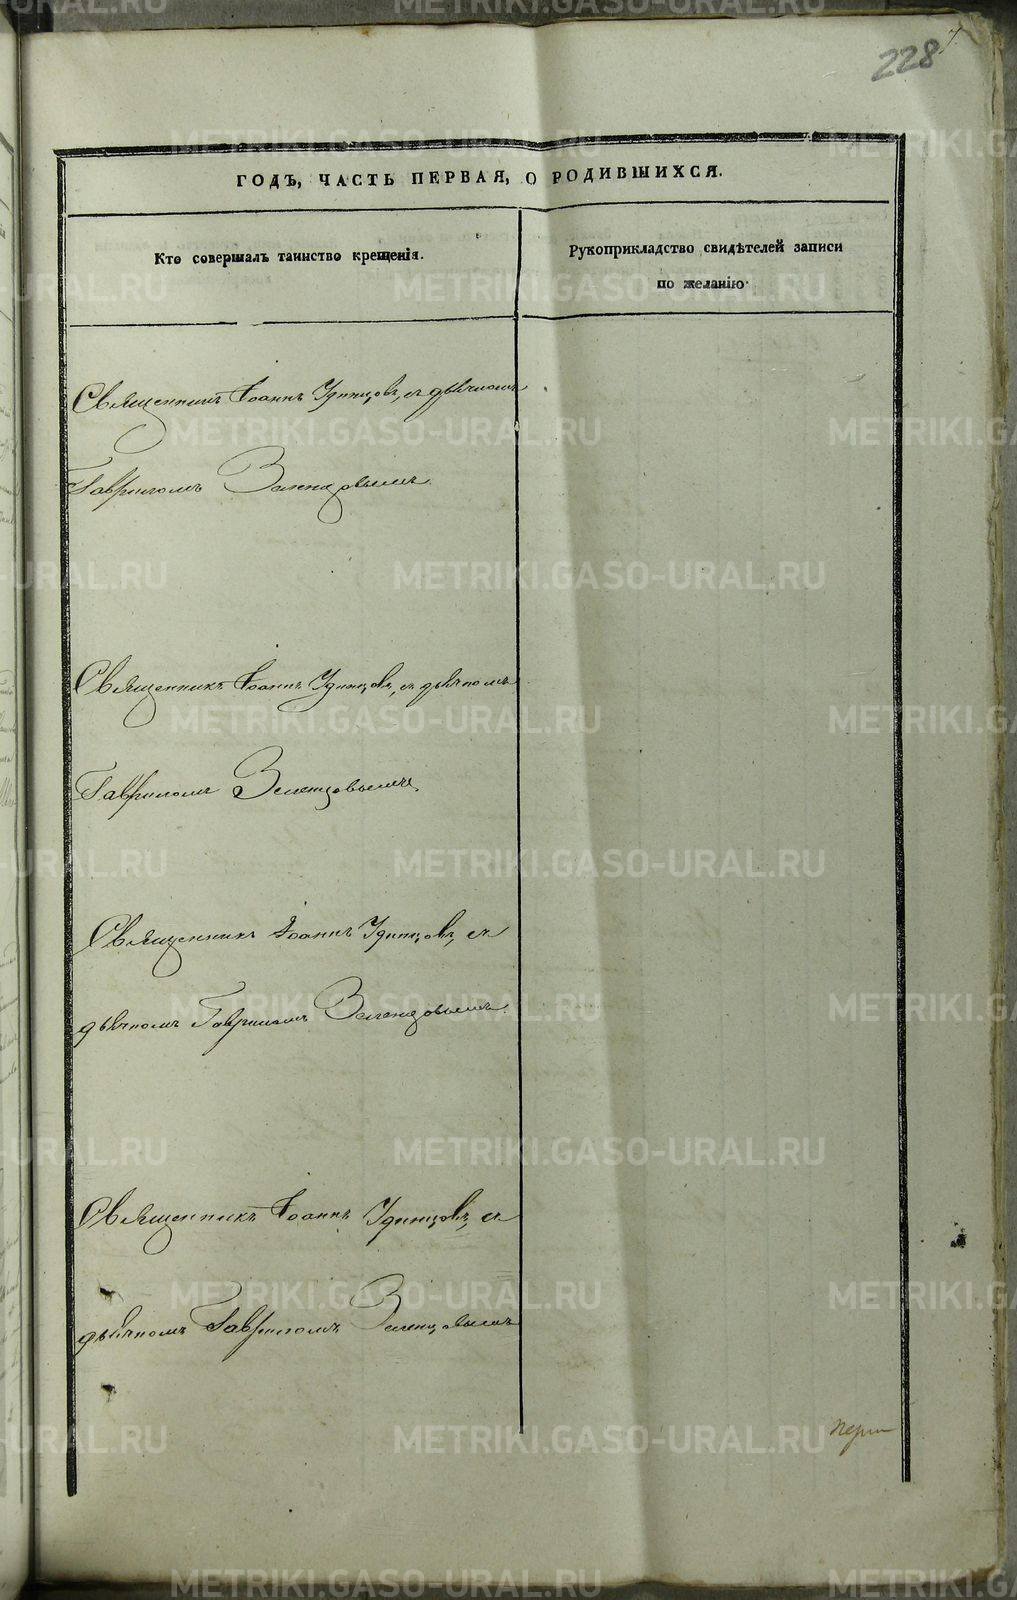 228
7.
ГОДЪ, ЧАСТЬ ПЕРВАЯ, О РОДИВШИХСЯ.
Кто совершалъ таинство крещенія.
Рукоприкладство свидѣтелей записи
по желанію.
Священникъ Іоаннъ Удинцовъ, съ дьячкомъ
Гавриломъ Зеленцовымъ.
Священникъ Іоаннъ Удинцовъ, съ дьячкомъ
Гавриломъ Зеленцовымъ.
Священникъ Іоаннъ Удинцовъ, съ
дьячкомъ Гавриломъ Зеленцовымъ.
Священникъ Іоаннъ Удинцовъ, съ
дьячкомъ Гавриломъ Зеленцовымъ
METRIKI.GASO-URAL.RU